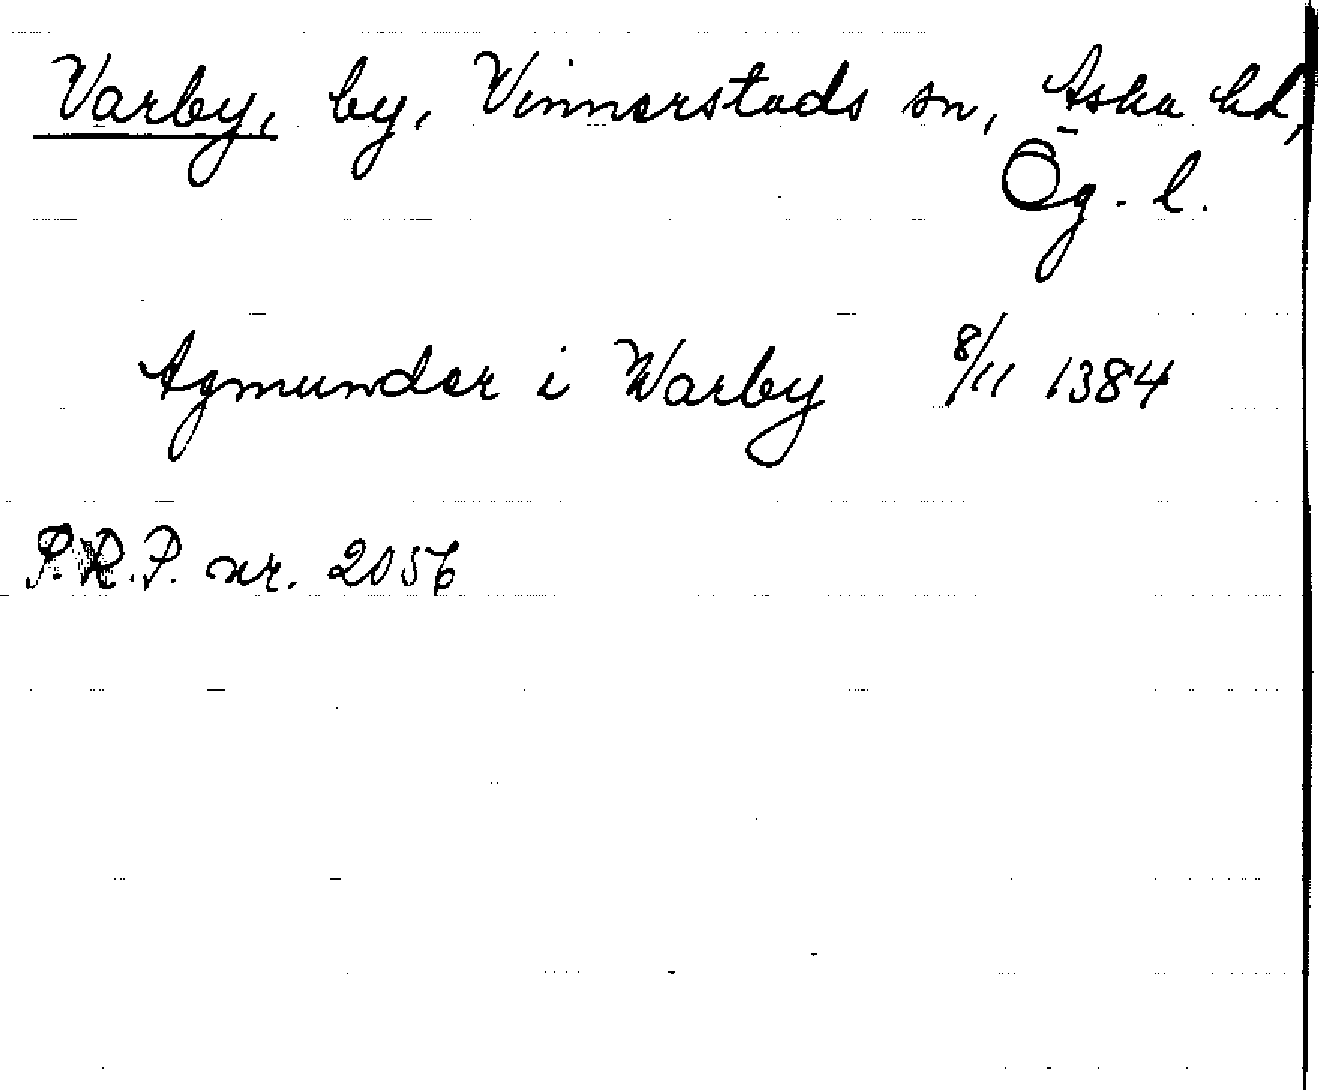 Varby, by, Vinnerstads sn, Aska hd,
Ög. l.
Agmunder i Warby 8/11 1384
P.R.P. nr. 2056